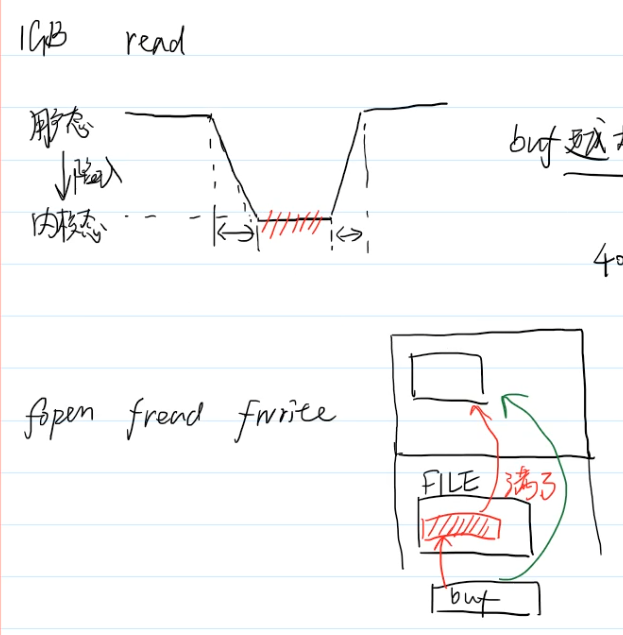 1GB read
用户态
buf 越
陷入
内核态
40
fopen fread fwrite
FILE 满了
buf